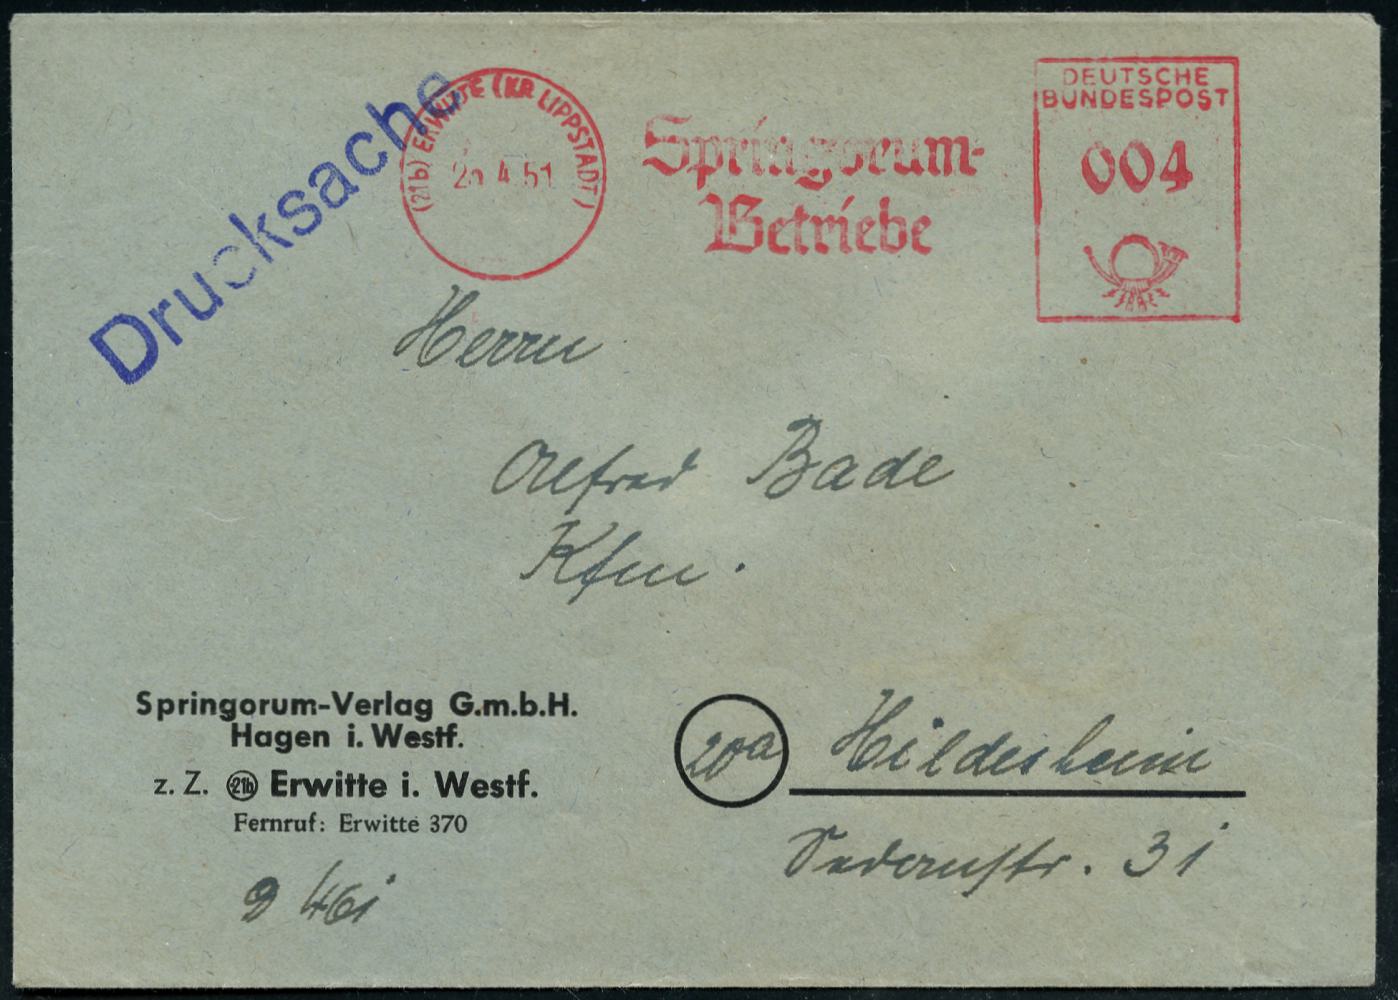 Drucksache
(21b) ERWITTE (KR LIPPSTADT)
4.51
Springorum-
Betriebe
DEUTSCHE
BUNDESPOST
004
Herrn
Alfred Bade
Kfm.
Springorum-Verlag G.m.b.H.
Hagen i. Westf.
z. Z. 21b Erwitte i. Westf.
Fernruf: Erwitte 370
20a Hildesheim
Sedanstr. 31